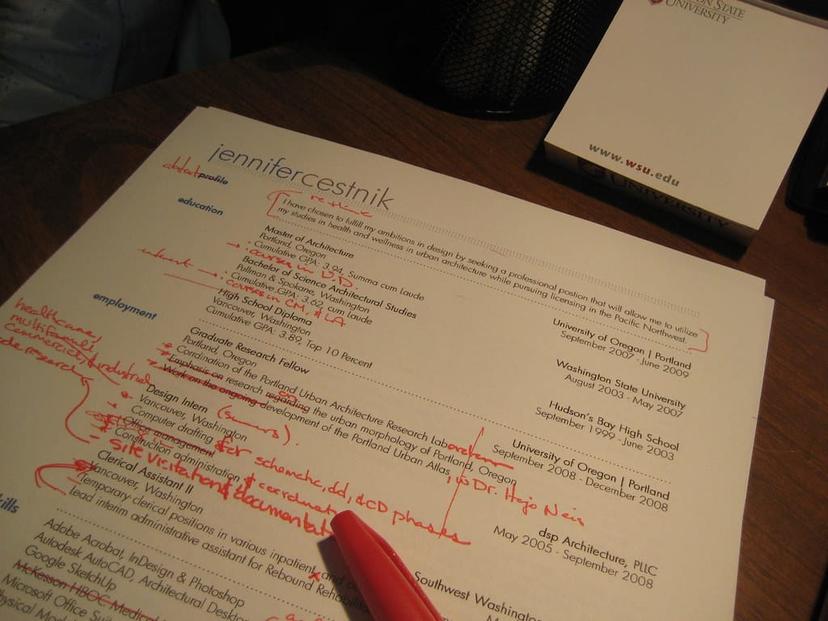 ON STATE
UNIVERSITY
www.wsu.edu
UNIVERSITY
jennifercestnik
profile
re-think
I have chosen to fulfill my ambitions in design by seeking a professional postion that will allow me to utilize
my studies in health and wellness in urban architecture while pursuing licensing in the Pacific Northwest.
education
Master of Architecture
University of Oregon | Portland
Portland, Oregon
September 2007 - June 2009
Cumulative GPA: 3.94, Summa cum Laude
courses in U.D.
Bachelor of Science Architectural Studies
Washington State University
Pullman & Spokane, Washington
August 2003 - May 2007
indent
Cumulative GPA: 3.62, cum Laude
courses in CM, & LA
High School Diploma
Hudson's Bay High School
Vancouver, Washington
September 1999 - June 2003
Cumulative GPA: 3.89, Top 10 Percent
employment
healthcare,
multifamily
commercial, & industrial
code research
Graduate Research Fellow
University of Oregon | Portland
Portland, Oregon
September 2008 - December 2008
Cordination of the Portland Urban Architecture Research Lab
Emphasis on research regarding the urban morphology of Portland, Oregon
on
Work on the ongoing development of the Portland Urban Atlas, w Dr. Hajo Neis
Design Intern (summers).
dsp Architecture, PLLC
Vancouver, Washington
May 2005 - September 2008
Computer drafting for schematic, dd, & CD phases
Office management
Construction administration & coordination
- site visitation & documentation
Clerical Assistant II
Southwest Washington
Vancouver, Washington
Temporary clerical positions in various inpatient and
Lead interim administrative assistant for Rebound Rehabili
skills
Adobe Acrobat, InDesign & Photoshop
Autodesk AutoCAD, Architectural Desk
Google SketchUp
McKesson HBOC Medical
Microsoft Office Sui
Physical Mod